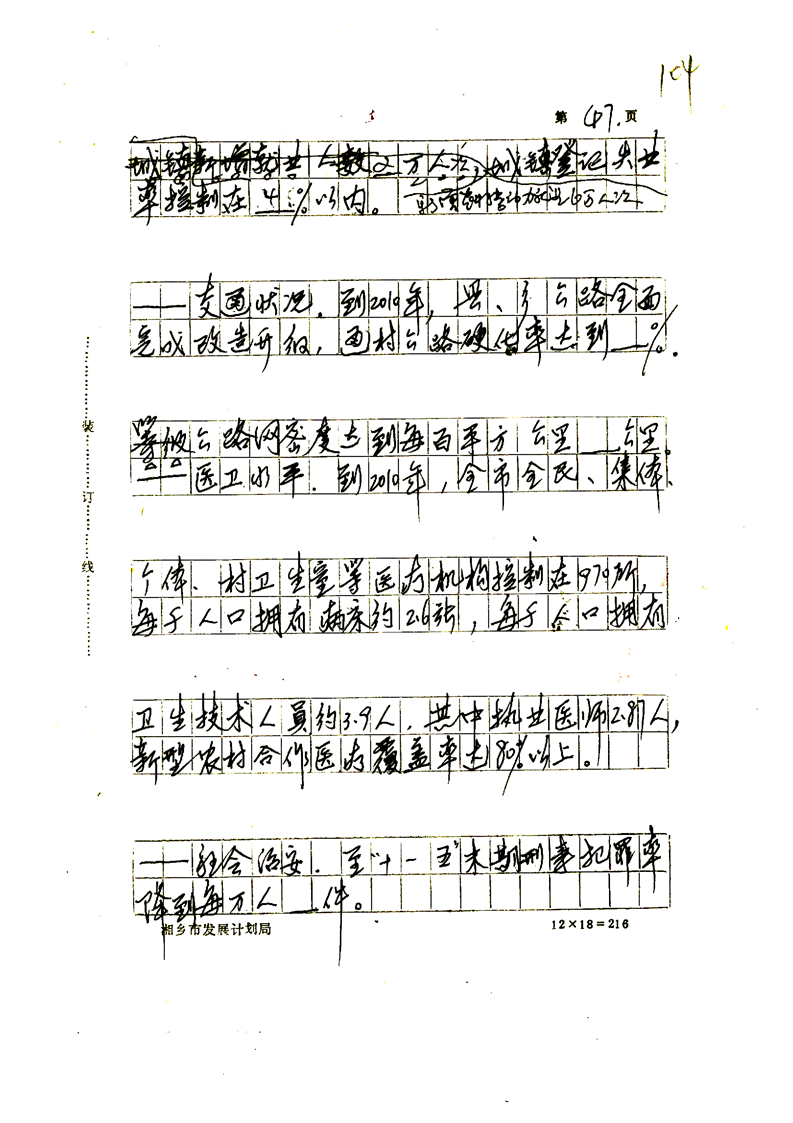 104
第 47. 页
城镇新增就业人数2万人次,城镇登记失业
率控制在 4 %以内。
——交通状况.到2010年,县、乡公路全面
完成改造升级,通村公路硬化率达到__%.
等级公路网密度达到每百平方公里__公里。
——医卫水平.到2010年,全市全民、集体、
个体、村卫生室等医疗机构控制在979所,
每千人口拥有病床约2.6张,每千人口拥有
卫生技术人员约3.9人.其中执业医师2.87人,
新型农村合作医疗覆盖率达80%以上。
——社会治安.至"十一五"末期刑事犯罪率
降到每万人__件。
装
订
线
湘乡市发展计划局
12×18=216